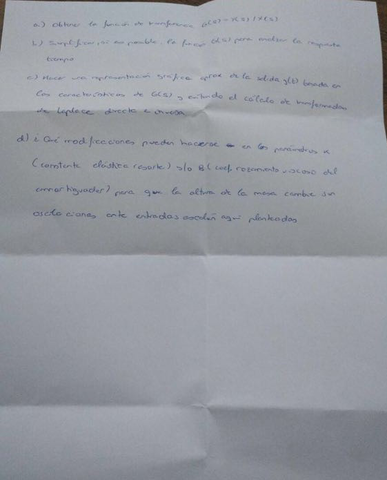 a) Obtener la función de transferencia G(s) = Y(s) / X(s)
b) Simplificar, si es posible, la función G(s) para analizar la respuesta
tiempo
c) Hacer una representación gráfica aprox de la salida y(t) basada en
las características de G(s) y evitando el cálculo de transformadas
de Laplace directa e inversa
d) ¿Qué modificaciones pueden hacerse en los parámetros K
(constante elástica resorte) y/o B (coef. rozamiento viscoso del
amortiguador) para que la altura de la masa cambie sin
oscilaciones ante entradas escalón aquí planteadas